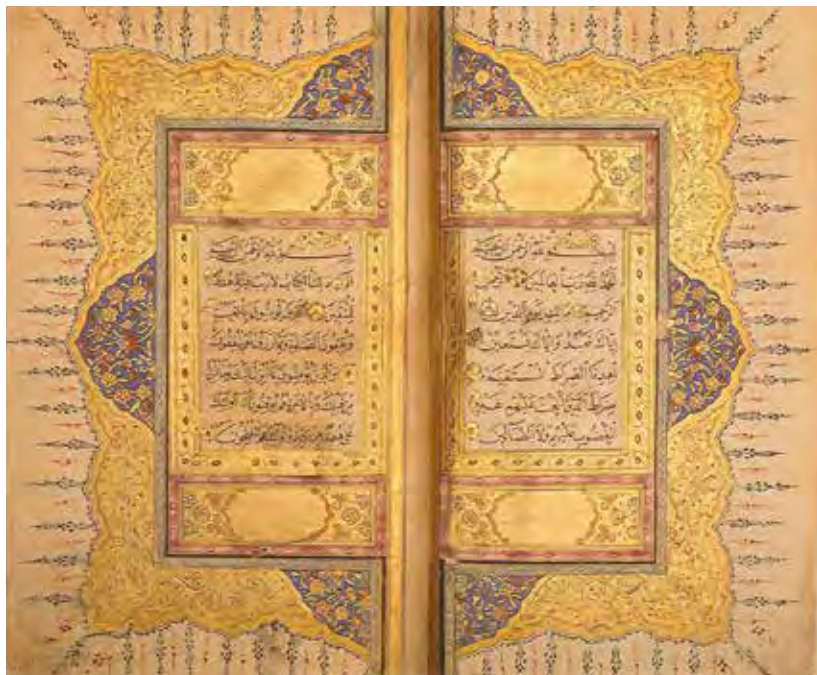 بسم الله الرحمن الرحيم
الحمد لله رب العالمين الرحمن
الرحيم مالك يوم الدين
اياك نعبد واياك نستعين
اهدنا الصراط المستقيم
صراط الذين انعمت عليهم غير
المغضوب عليهم ولا الضالين
بسم الله الرحمن الرحيم
الم ذلك الكتاب لا ريب فيه هدى
للمتقين الذين يؤمنون بالغيب
ويقيمون الصلوة ومما رزقناهم ينفقون
والذين يؤمنون بما انزل اليك وما انزل
من قبلك وبالاخرة هم يوقنون اولئك
على هدى من ربهم واولئك هم المفلحون